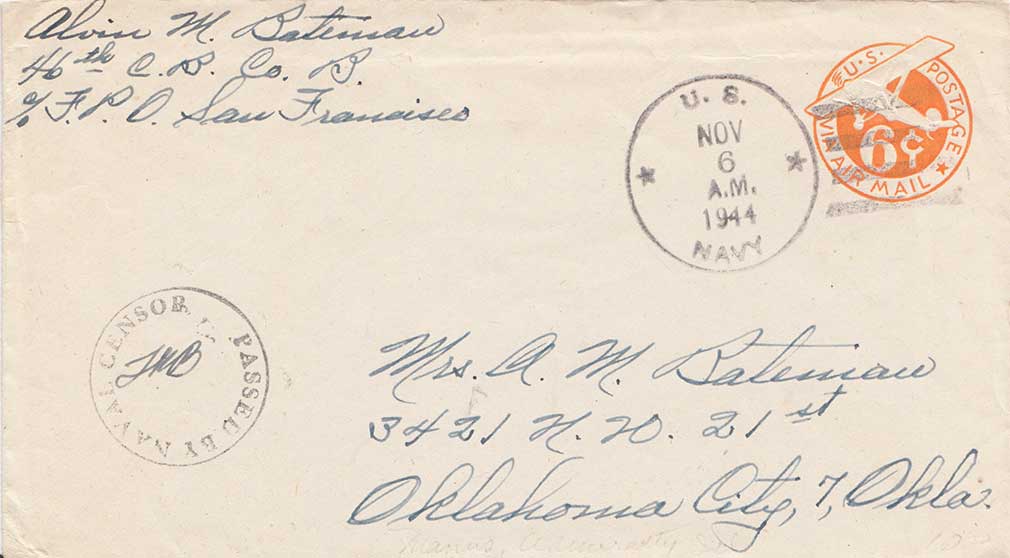 Alvin M. Bateman
46th C.B. Co. B.
c/o F.P.O. San Francisco
U.S. POSTAGE
6¢
VIA AIR MAIL
U. S.
NOV
6
A.M.
1944
NAVY
PASSED BY NAVAL CENSOR
Mrs. A. M. Bateman
3421 N.W. 21st
Oklahoma City, 7, Okla.
Manus, Admiralty